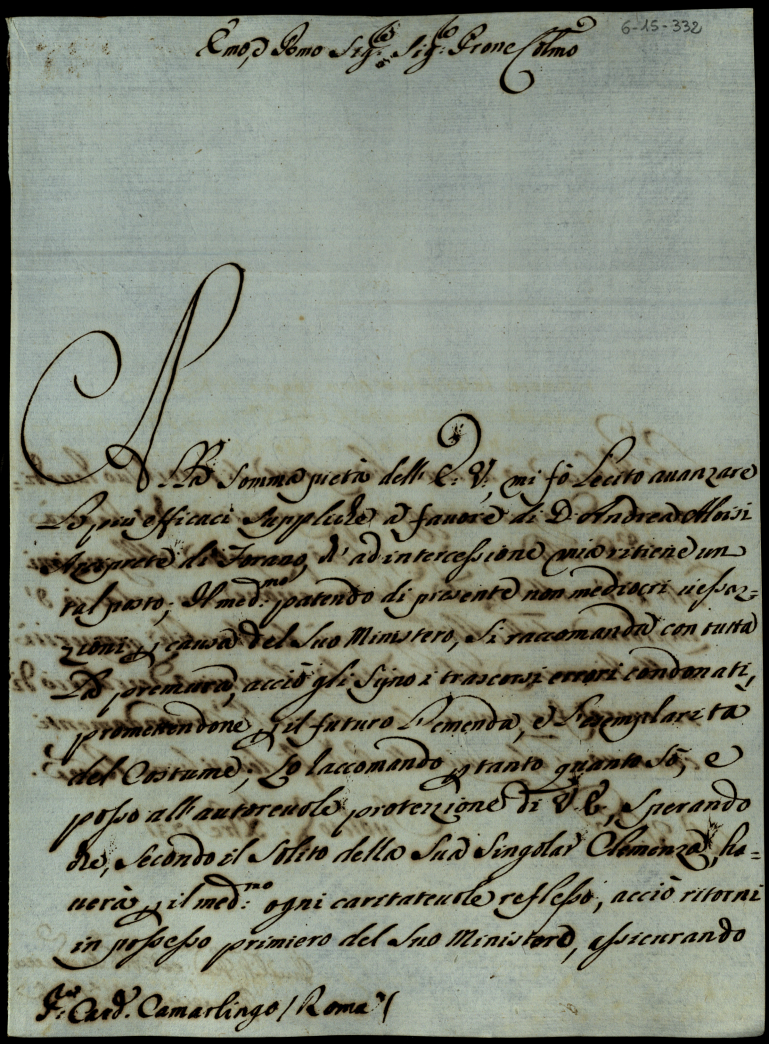 6-15-332
Em̃o, e Rmo Sig:re Sig:re Prone Colmo
Alla Somma pietà dell' E: V:, mi fò Lecito avanzare
Le più efficaci suppliche à favore di D. Andrea Aloisi
Arciprete di Torano, ch' ad intercessione mia ritiene un
tal posto; Il med:mo patendo di presente non mediocri vessaz=
zioni p causa del Suo Ministero, Si raccomanda con tutta
La premura, acciò gli Sijno i trascorsi errori condonati,
promettendone p il futuro L'emenda, e L'esemplarità
del Costume; Lo raccomando p tanto quanto sò, e
posso all' autorevole protezione di V. E., Sperando
che, Secondo il Solito della Sua Singolar Clemenza, ha=
verà p il med:mo ogni caritatevole reflesso, acciò ritorni
in possesso primiero del Suo Ministero, assicurando
Card. Camarlingo / Roma /